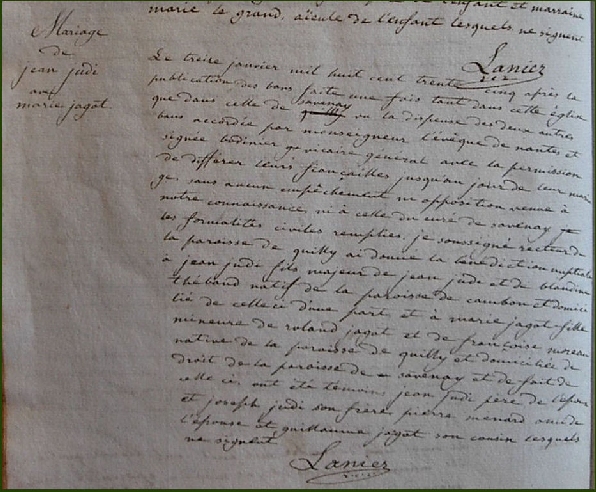 de l'enfant et marraine
marie le grand, aieule de l'enfant lesquels ne signent
Lanier
Mariage
de
jean judi
avec
marie jagot
Le treize janvier mil huit cent trente cinq après la
publication des bans faite une fois tant dans cette église
que dans celle de savenay vu la dispense des deux autres
bans accordée par monseigneur l'évêque de nantes et
signée bodinier ge vicaire general avec la permission
de differer leurs fiançailles jusqu'au jour de leur maria
ge, sans aucun empêchement ni opposition venue à
notre connaissance ni à celle du curé de savenay
les formalites civiles remplies, je soussigné recteur de
la paroisse de quilly ai donné la benediction nuptiale
à jean judi fils majeur de jean judi et de blandine
thébaud natif de la paroisse de cambon et domici
lié de celle ci d'une part et à marie jagot fille
mineure de roland jagot et de françoise moreau
native de la paroisse de quilly et domiciliée de
droit de la paroisse de savenay et de fait de
celle ci, ont été temoins jean judi père de l'epoux
et joseph judi son frere pierre menard ami de
l'épouse et guillaume jagot son cousin lesquels
ne signent
Lanier